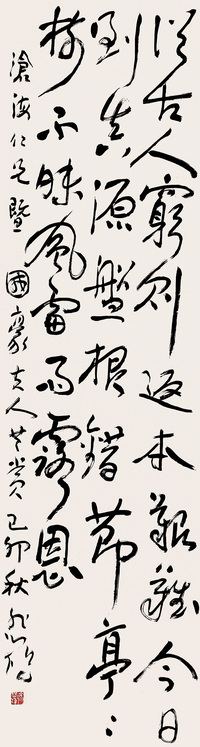 從古人窮則返本艱難今日
到真源盤根錯節亭々
樹不昧風雷雨露恩
滄海仁兄暨國豪夫人共賞己卯秋